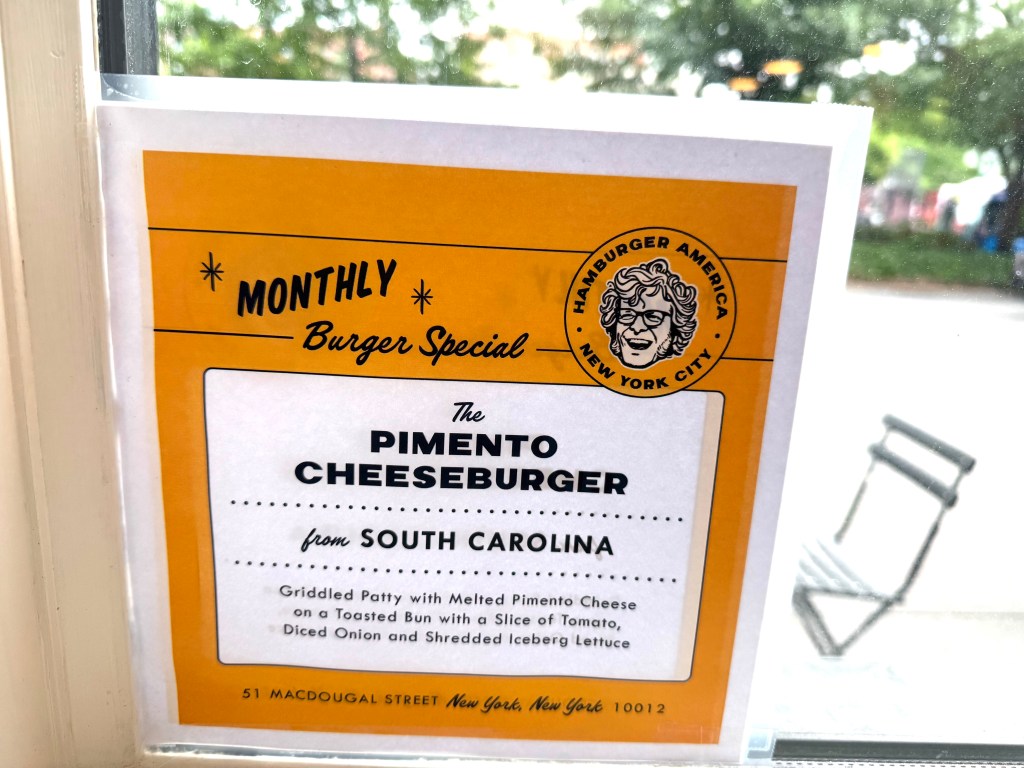 MONTHLY
Burger Special
HAMBURGER AMERICA
NEW YORK CITY
The
PIMENTO
CHEESEBURGER
from SOUTH CAROLINA
Griddled Patty with Melted Pimento Cheese
on a Toasted Bun with a Slice of Tomato,
Diced Onion and Shredded Iceberg Lettuce
51 MACDOUGAL STREET New York, New York 10012